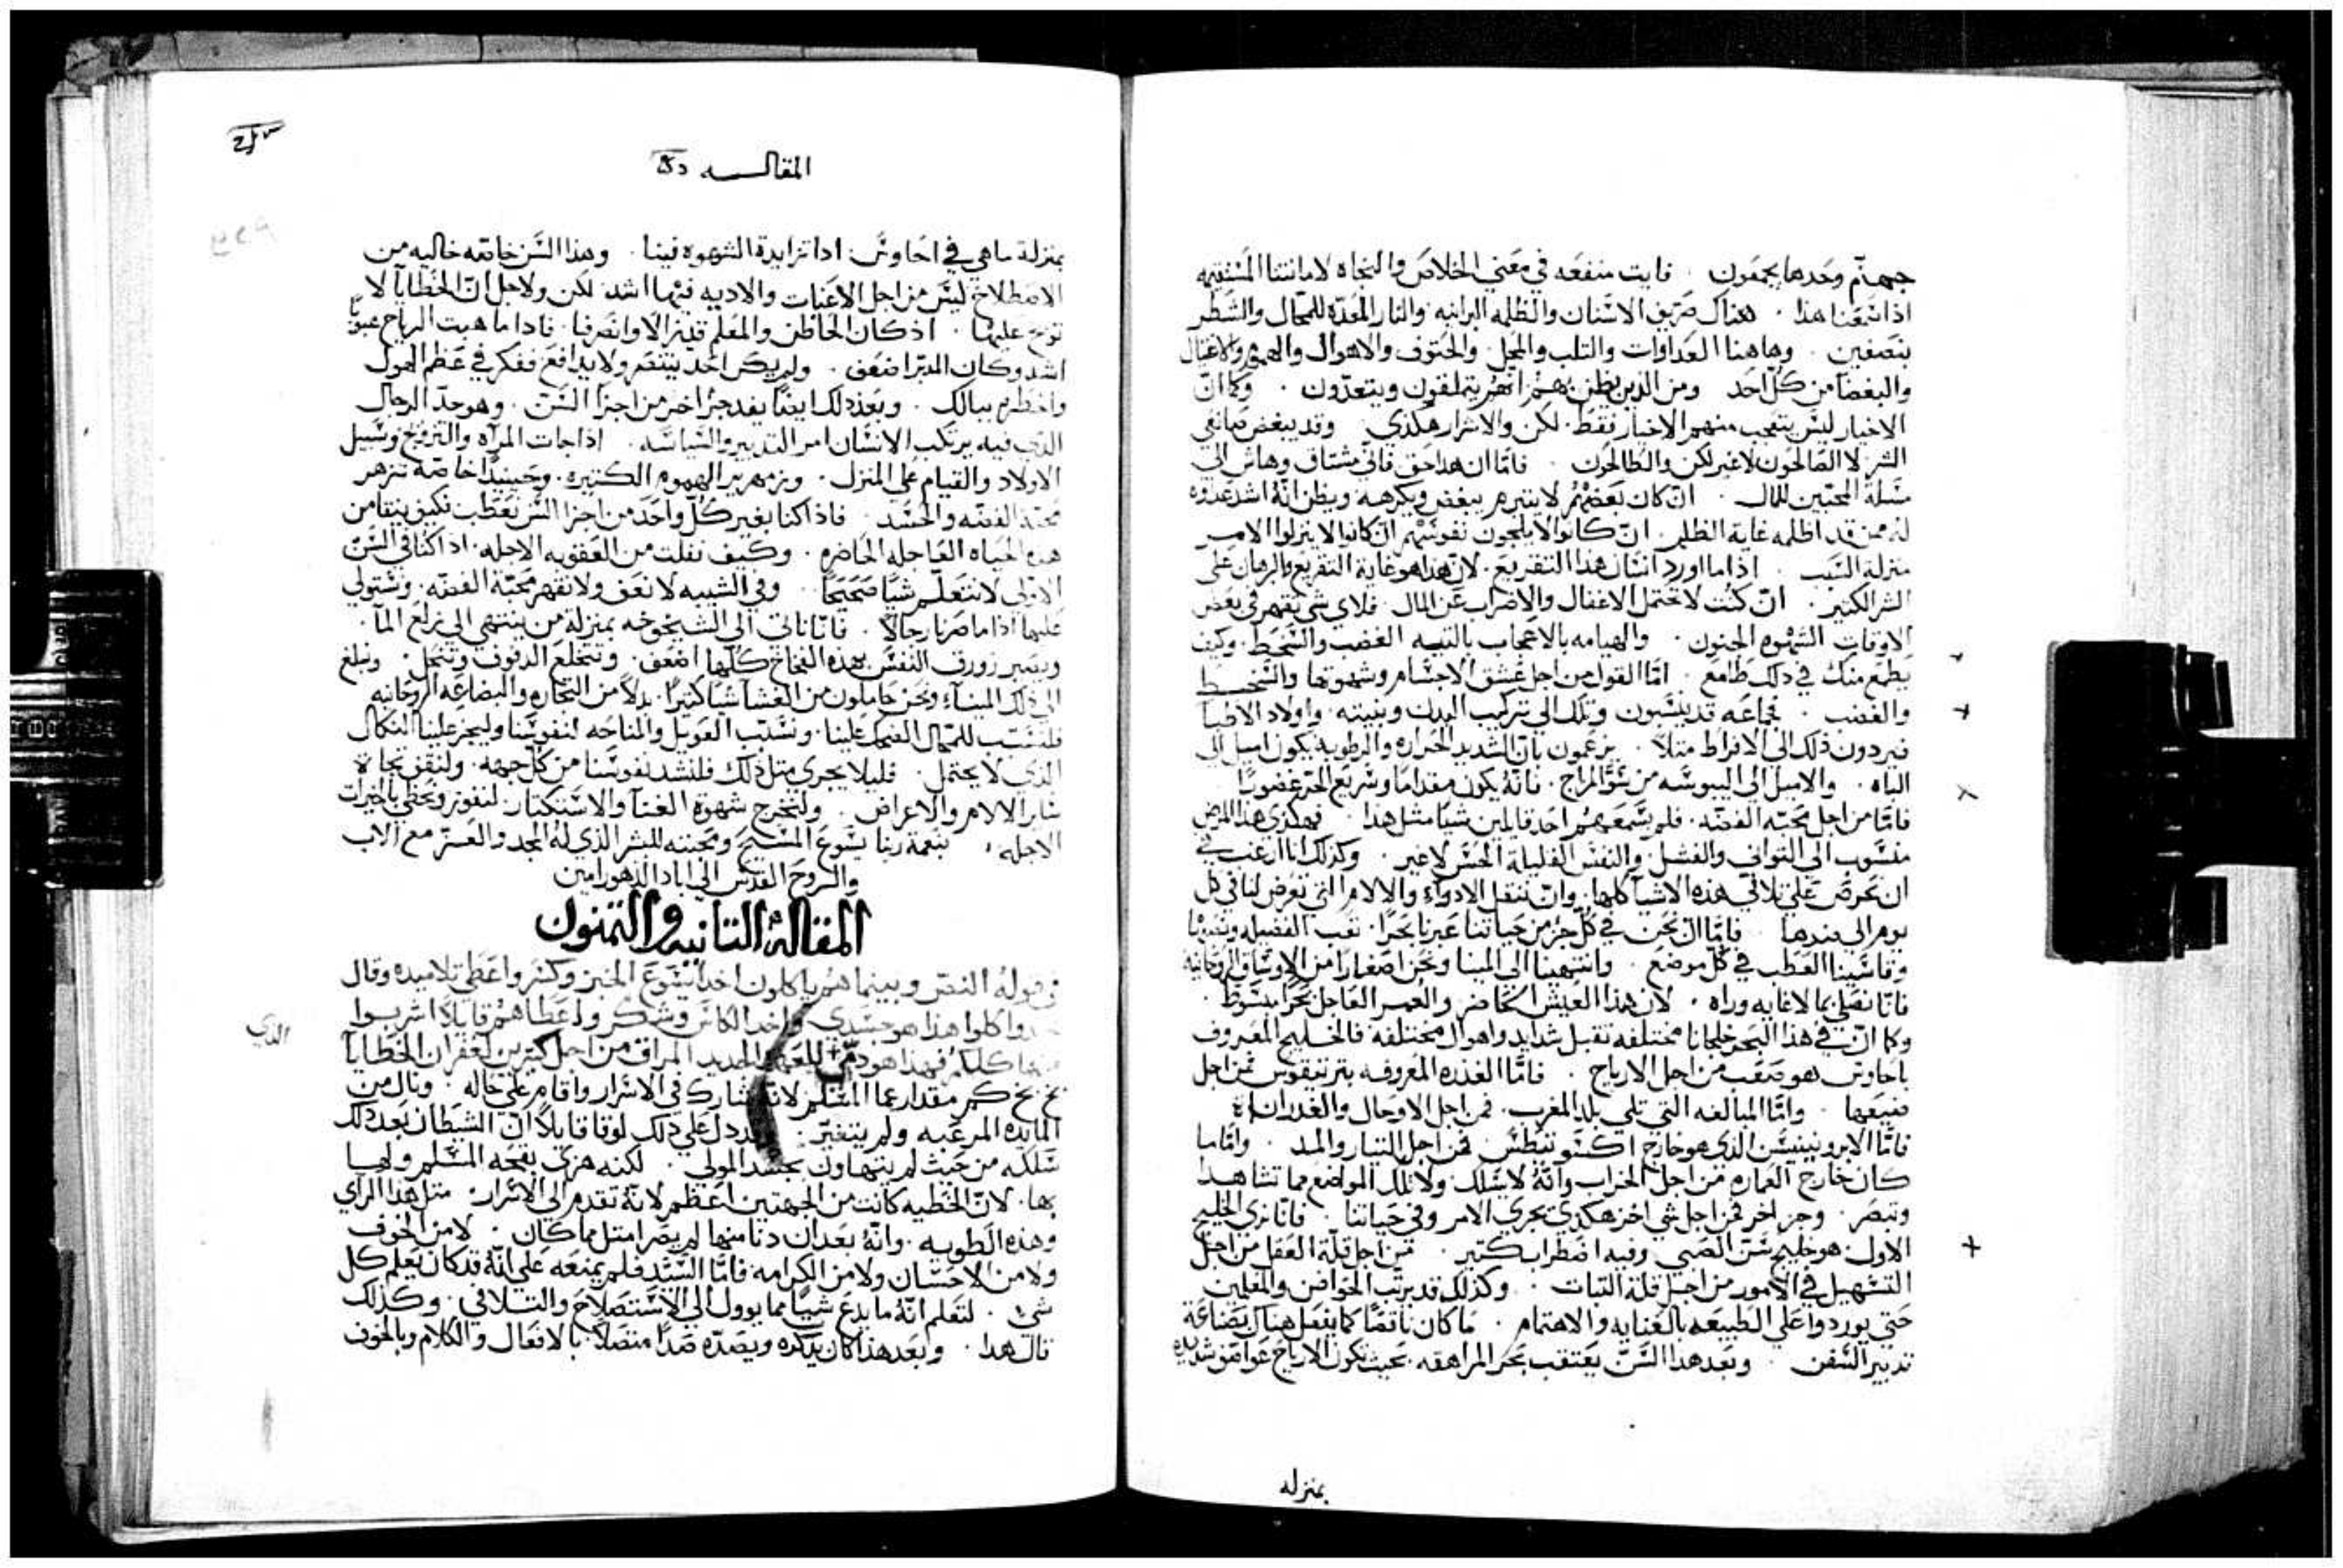 جهنم وحدها يجمعون . فايت منفعه في معني الخلاص والنجاه لامانتنا المستقيمه
اذا سمعنا هذا . هناك صريف الاسنان والظلمه البرانيه والنار المعده للمحال والشطر
بتصغين . وهاهنا العداوات والتلب والمحل . والحتوف والاهوال والهموم والاغتيال
والبغضا من كل احد ومن الذين يظن بهم انهم يتملقون ويتعدون . وكما ان
الاخيار ليس يتعجب منهم الاخيار فقط . لكن والاشرار هكذي وقد يبغض صانعي
الشر لا الصالحون لاغير لكن والطالحون . فاما ان هذا حق فاني مشتاق وهاش الي
مسلة المحبين للمال . ان كان بعضهم لا يتبرم ببعض ويكرهه ويظن انه اشد عدوه
له ممن قد اظلمه غاية الظلم . ان كانوا لا يلجون نفوسهم ان كانوا لا ينزلوا الامر
منزلة السب . اذا ما اورد انسان هذا التقريع . لان هذا هو غاية التقريع والرهان علي
الشر الكتير . ان كنت لا تحتمل الاغفال والاضراب عن المال . فلاي شي تقهر في بعض
الاوقات الشهوه الجنون . والهيامه بالاعجاب بالتيه الغضب والسخط . وكيف
يطمع منك في ذلك طامع . اما القول من اجل عشق الاجسام وشهوتها والسخط
والغضب . فجماعه قد ينسبون وتلك الي تركيب البدن وبنيته . واولاد الاطبا
فيردون ذلك الي الافراط متلا . يزعمون بان الشديد الحراره والرطوبه يكون اميل الي
الباه . والاميل الي اليبوسه من سو المزاج . فانه يكون مقداما وسريع الحرد غضوبا
فاما من اجل محبة الفضه . فلم يسمعهم احد قايلين شيا مثل هذا . فهكذي هذا المرض
منسوب الي التواني والفشل . والنفس القليلة الحس لاغير . وكذلك انا ارغب في
ان نحرص علي تلافي هذه الاشيا كلها . وان ننقل الادواء والالام التي تعرض لنا في كل
يوم الي ضدها فاما ان نحن في كل جز من حياتنا عبرنا بحرا . تعب الفضيله وتعدينا
وقاسينا العطب في كل موضع . وانتهينا الي المينا ونحن اصفارا من الاوساق الروحانيه
فانا نصلي بما لا غايه وراه . لان هذا العيش الحاضر والعمر العاجل بحرا مبسوط .
وكما ان في هذا البحر خلجانا مختلفه تقبل شدايد واهوال مختلفه فالخليج المعروف
باحاوس هو صعب من اجل الارياح . فاما الغدره المعروفه بترتيقوس فمن اجل
ضيقها . واما المبالغه التي تلي بلد المغرب . فمن اجل الاوحال والغدران
فاما الابروبيتيسس الذي هو خارج اكسنو تيطس . فمن اجل التيار والمد . واما ما
كان خارج العماره فمن اجل الخراب وانه لا يسلك ولا تلك المواضع مما تشاهد
وتبصر . وجز اخر فمن اجل شي اخر هكذي تجري الامر وفي حياتنا . فانا نري الخليج
الاول هو خليج سن الصبي وفيه اضطراب كتير . فمن اجل قلة العقل من اجل
التسهيل في الامور من اجل قلة التبات . وكذلك قد يرتب الحواضن والمعلمين
حتي يوردوا علي الطبيعه بالعنايه والاهتمام . ما كان ناقصا كما يفعل هناك بصناعة
تدبير السفن . وبعد هذا السن يعتقب بحر المراهقه . بحيث تكون الارياح عواصف شديده
بمنزله
المقالـــه
بمنزلة ما هي في احاوس . اذا تزايدة الشهوه فينا . وهذا السن خاصه خاليه من
الاصطلاح ليس من اجل الاعنات والاديه فيها اشد لكن ولاجل ان الخطايا لا
توبخ عليها . اذ كان الحاظن والمعلم قد زالا وانصرفا . فاذا ما هبت الرياح هبوبا
اشد وكان المدبر اضعف . ولم يكن احد ينتصر ولا يدافع ففكر في عظم الهول
واخطره ببالك . وبعد ذلك ايضا يعد جزا اخر من اجزا السن . وهو حد الرجال
الذي فيه يرتكب الانسان امر التدبير والسياسه . اذا جات المراه والتزويج ونسبيل
الاولاد والقيام علي المنزل . وزمهرير الهموم الكتيره . وحينيذا خاصة تزهر
محبة الفضه والحسد . فاذا كنا بغير كل واحد من اجزا السن بعطب فكيف يتفا من
هذه الحياه العاجله الحاضره . وكيف نفلت من العقوبه الاجله . اذا كنا في السن
الاولي لا نتعلم شيا صحيحا . وفي الشبيبه لا نعف ولا نقهر محبة الفضه . ونستولي
عليها اذا ما صرنا رجالا . فانا ناتي الي الشيخوخه بمنزلة من ينتهي الي نزلع الما .
ويصير زورق النفس بهذه الفخاخ كلها اضعف . وتتخلع الدفوف وتنحل . ونبلغ
الي ذلك الميناء ونحن حاملون من الغشا شيا كتيرا . بدلا من التجاره والبضاعه الروحانيه
فلنسبب للمحال الضحك علينا . ونسبب العويل والمناحه لنفوسنا وليجر علينا النكال
الذي لا يحتمل . فليلا يجري متل ذلك فلنشد نفوسنا من كل جهه . ولنقف تجاه
ساير الالام والاعراض . ولنخرج شهوة الغنا والاستكتار لنفوز ونحظي بالخيرات
الاجله . بنعمة ربنا يسوع المسيح ومحبته للبشر الذي له المجد والعز مع الاب
والروح القدس الي اباد الدهور امين
المقالة التانيه والتمنون
في قوله النص وبينما هم ياكلون اخذ يسوع الخبز وكسر واعطي تلاميده وقال
خذوا كلوا هذا هو جسدي واخذ الكاس وشكر واعطاهم قايلا اشربوا
منها كلكم فهذا هو دمي للعهد الجديد المراق من اجل كتيرين لغفران الخطايا
الذي
بخ بخ كم مقدار عما المسلم لانه شارك في الاسرار واقام علي حاله . ونال من
المايده المرعبه ولم يتغير . وقد دل علي ذلك لوقا قايلا ان الشيطان بعد ذلك
سلكه من حيث لم يتهاون بجسد المولي . لكنه هزي بقحه المسلم ولهيا
بها . لان الخطيه كانت من الجهتين اعظم لانه تقدم الي الاسرار . متل هذا الراي
وهذه الطويه . وانه بعد ان دنا منها لم يصر امتل مما كان . لا من الخوف
ولا من الاحسان ولا من الكرامه فاما السيد فلم يمنعه علي انه قد كان يعلم كل
شيء . لتعلم انه ما يدع شيا مما يوول الي الاستصلاح والتلافي . وكذلك
قال هذا . وبعد هذا كان يذكره ويصده صدا متصلا . بالافعال والكلام وبالخوف